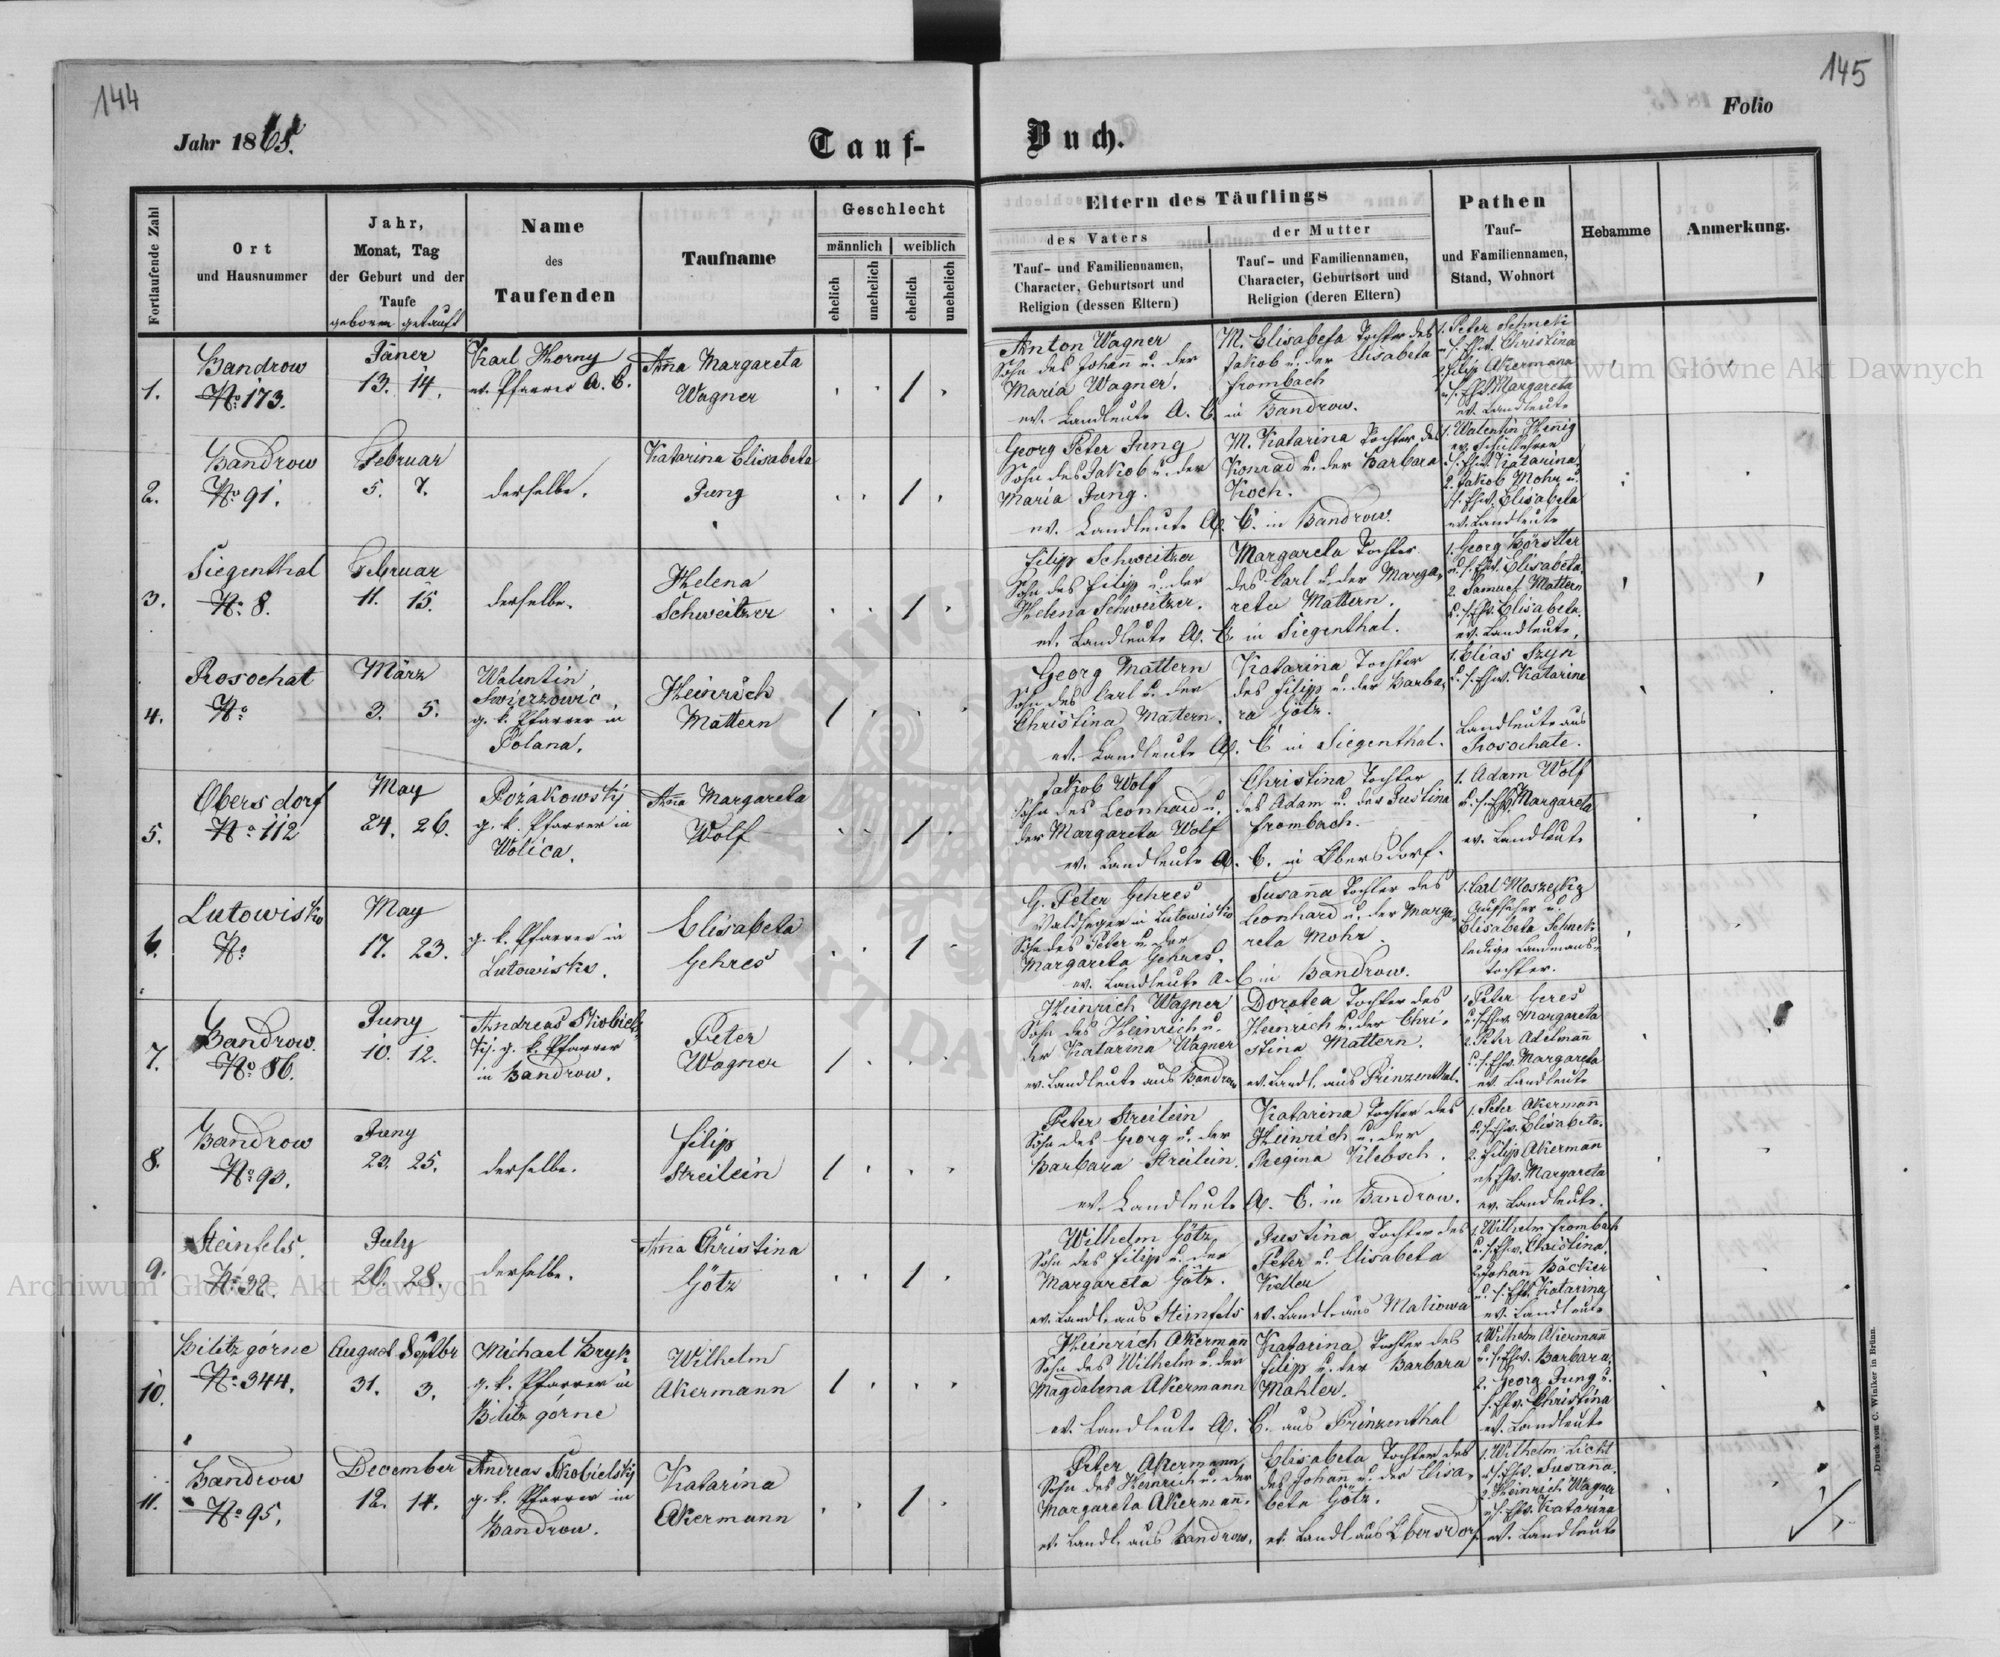 144
145
Folio
Jahr 1865.
Tauf-
Buch.
Fortlaufende Zahl
Ort
und Hausnummer
Jahr,
Monat, Tag
der Geburt und der
Taufe
geboren getauft
Name
des
Taufenden
Taufname
Geschlecht
männlich
weiblich
ehelich
unehelich
ehelich
unehelich
Eltern des Täuflings
des Vaters
Tauf- und Familiennamen,
Character, Geburtsort und
Religion (dessen Eltern)
der Mutter
Tauf- und Familiennamen,
Character, Geburtsort und
Religion (deren Eltern)
Pathen
Tauf-
und Familiennamen,
Stand, Wohnort
Hebamme
Anmerkung.
1.
Bandrow
No 173.
Jäner
13. 14.
Karl Horny
ev. Pfarrer A. C.
Anna Margareta
Wagner
1
Anton Wagner
Sohn des Johann u. der
Maria Wagner.
ev. Landleute A. C. in Bandrow.
M. Elisabeta Tochter des
Jakob u. der Elisabeta
Frombach
1. Peter Schneik
u. s. Ehw. Christina
2. Filip Akermann
u. s. Ehw. Margareta
ev. Landleute
2.
Bandrow
No 91.
Februar
5. 7.
derselbe.
Katarina Elisabeta
Jung
1
Georg Peter Jung
Sohn des Jakob u. der
Maria Jung.
ev. Landleute A. C. in Bandrow.
M. Katarina Tochter des
Konrad u. der Barbara
Koch.
1. Walentin Henig
ev. Schullehrer
u. s. Ehw. Katarina.
2. Jakob Mohr u.
s. Ehw. Elisabeta
ev. Landleute
3.
Siegenthal
No 8.
Februar
11. 15.
derselbe.
Helena
Schweitzer
1
Filip Schweitzer
Sohn des Filip u. der
Helena Schweitzer.
ev. Landleute A. C. in Siegenthal.
Margareta Tochter
des Carl u. der Marga-
reta Mattern.
1. Georg Börstler
u. s. Ehw. Elisabeta.
2. Samuel Mattern
u. s. Ehw. Elisabeta.
ev. Landleute.
4.
Rosochat
No
März
3. 5.
Walentin
Swierzowic
g. k. Pfarrer in
Polana.
Heinrich
Mattern
1
Georg Mattern
Sohn des Carl u. der
Christina Mattern.
ev. Landleute A. C. in Siegenthal.
Katarina Tochter
des Filip u. der Barba-
ra Götz.
1. Elias Szyn
u. s. Ehw. Katarina
Landleute aus
Rosochate.
5.
Obersdorf
No 112
May
24. 26.
Rozakowsky
g. k. Pfarrer in
Wolica.
Anna Margareta
Wolf
1
Jakob Wolf
Sohn des Leonhard u.
der Margareta Wolf
ev. Landleute A. C. in Obersdorf.
Christina Tochter
des Adam u. der Justina
Frombach.
1. Adam Wolf
u. s. Ehw. Margareta
ev. Landleute
6.
Lutowisko
No
May
17. 23.
g. k. Pfarrer in
Lutowisko.
Elisabeta
Gehres
1
G. Peter Gehres
Waldheger in Lutowisko
Sohn des Peter u. der
Margareta Gehres.
ev. Landleute A. C. in Bandrow.
Susanna Tochter des
Leonhard u. der Marga-
reta Mohr
1. Carl
Aufseher u.
Elisabeta
ledige Landmans-
tochter.
7.
Bandrow.
No 86.
Juny
10. 12.
Andreas Skobiels-
kij. g. k. Pfarrer
in Bandrow.
Peter
Wagner
1
Heinrich Wagner
Sohn des Heinrich u.
der Katarina Wagner
ev. Landleute aus Bandrow
Dorotea Tochter des
Heinrich u. der Chri-
stina Mattern.
ev. Landl. aus Prinzenthal.
1. Peter Geres
u. s. Ehw. Margareta
2. Peter Adelmann
u. s. Ehw. Margareta
ev. Landleute
8.
Bandrow
No 90.
Juny
23. 25.
derselbe.
Filip
Streilein
1
Peter Streilein
Sohn des Georg u. der
Barbara Streilein.
ev. Landleute A. C. in Bandrow.
Katarina Tochter des
Heinrich u. der
Regina Klebsch.
1. Peter Akermann
u. s. Ehw. Elisabeta.
2. Filip Akerman
u. s. Ehw. Margareta
ev. Landleute.
9.
Steinfels.
No 32.
July
26. 28.
derselbe.
Anna Christina
Götz
1
Wilhelm Götz
Sohn des Filip u. der
Margareta Götz.
ev. Landl. aus Steinfels
Justina Tochter des
Peter u. Elisabeta
Keller
ev. Landl. aus Makowa
1. Wilhelm Frombach
u. s. Ehw. Christina.
2. Johann Bäcker
u. s. Ehw. Katarina
ev. Landleute
10.
Bilitz górne
No 344.
August Septbr
31. 3.
Michael Bryk
g. k. Pfarrer in
Bilitz górne
Wilhelm
Akermann
1
Heinrich Akerman
Sohn des Wilhelm u. der
Magdalena Akermann
ev. Landleute A. C. aus Prinzenthal
Katarina Tochter des
Filip u. der Barbara
Mahler.
1. Wilhelm Akermann
u. s. Ehw. Barbara.
2. Georg Jung u.
s. Ehw. Christina
ev. Landleute
11.
Bandrow
No 95.
December
12. 14.
Andreas Skobielsky
g. k. Pfarrer in
Bandrow.
Katarina
Akermann
1
Peter Akermann
Sohn des Heinrich u. der
Margareta Akermann.
ev. Landl. aus Bandrow.
Elisabeta Tochter des
des Johan u. der Elisa-
beta Götz.
ev. Landl. aus Obersdorf
1. Wilhelm Licht
u. s. Ehw. Susanna.
2. Heinrich Wagner
u. s. Ehw. Katarina
ev. Landleute
Druck von C. Winiker in Brünn.
Archiwum Główne Akt Dawnych
Archiwum Główne Akt Dawnych